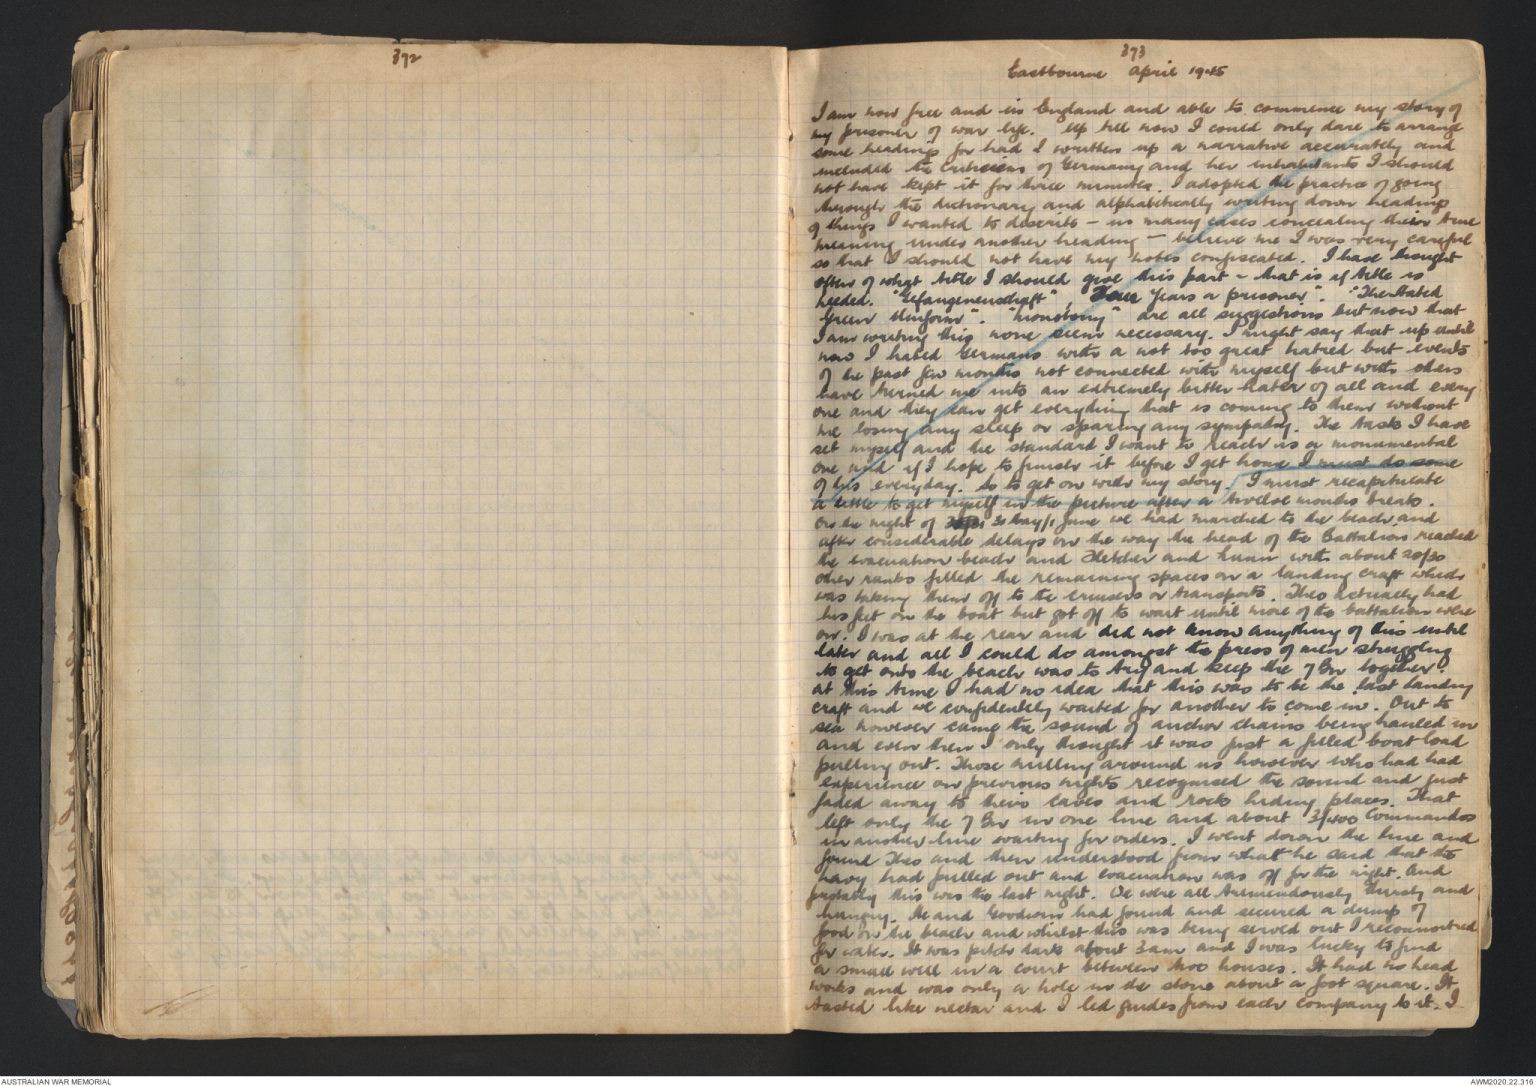 372
373
Eastbourne April 1945
I am now free and in England and able to commence my story of
my prisoner of war life. Up till now I could only dare to arrange
some headings for had I written up a narrative accurately and
included the criticisms of Germany and her inhabitants I should
not have kept it for three minutes. I adopted the practice of going
through the dictionary and alphabetically writing down headings
of things I wanted to describe - in many cases concealing their true
meaning under another heading - believe me I was very careful
so that I should not have my notes confiscated. I have thought
often of what title I should give this part - that is if title is
needed. "Gefangenenschaft", Four Years a prisoner". "The Hated
Green Uniform". "Monotony" are all suggestions but now that
I am writing this none seem necessary. I might say that up until
now I hated Germans with a not too great hatred but events
of the past few months not connected with myself but with others
have turned me into an extremely bitter hater of all and every
one and they can get everything that is coming to them without
me losing any sleep or sparing any sympathy. The task I have
set myself and the standard I want to reach is a monumental
one and if I hope to finish it before I get home I must do some
of this everyday. So to get on with my story. I must recapitulate
a little to get myself in the picture after a twelve months break.
On the night of 31 May/1 June we had marched to the beach and
after considerable delays on the way the head of the Battalion reached
the evacuation beach and Fletcher and Lunn with about 20/30
other ranks filled the remaining spaces on a landing craft which
was taking them off to the cruisers or transports. Theo actually had
his feet on the boat but got off to wait until more of the battalion were
on. I was at the rear and did not know anything of this until
later and all I could do amongst the press of men struggling
to get onto the beach was to try and keep the 7 Bn together.
At this time I had no idea that this was to be the last landing
craft and we confidently waited for another to come in. Out to
sea however came the sound of anchor chains being hauled in
and even then I only thought it was just a filled boat load
pulling out. Those milling around us however who had had
experience on previous nights recognised the sound and just
faded away to their caves and rock hiding places. That
left only the 7 Bn in one line and about 3/400 Commandos
in another line waiting for orders. I went down the line and
found Theo and then understood from what he said that the
navy had pulled out and evacuation was off for the night. And
probably this was the last night. We were all tremendously thirsty and
hungry. He and Goodwin had found and secured a dump of
food on the beach and whilst this was being served out I reconnoitred
for water. It was pitch dark about 3 am and I was lucky to find
a small well in a court between two houses. It had no head
works and was only a hole in the stone about a foot square. It
tasted like nectar and I led guides from each company to it. I
AUSTRALIAN WAR MEMORIAL
AWM2020.22.316